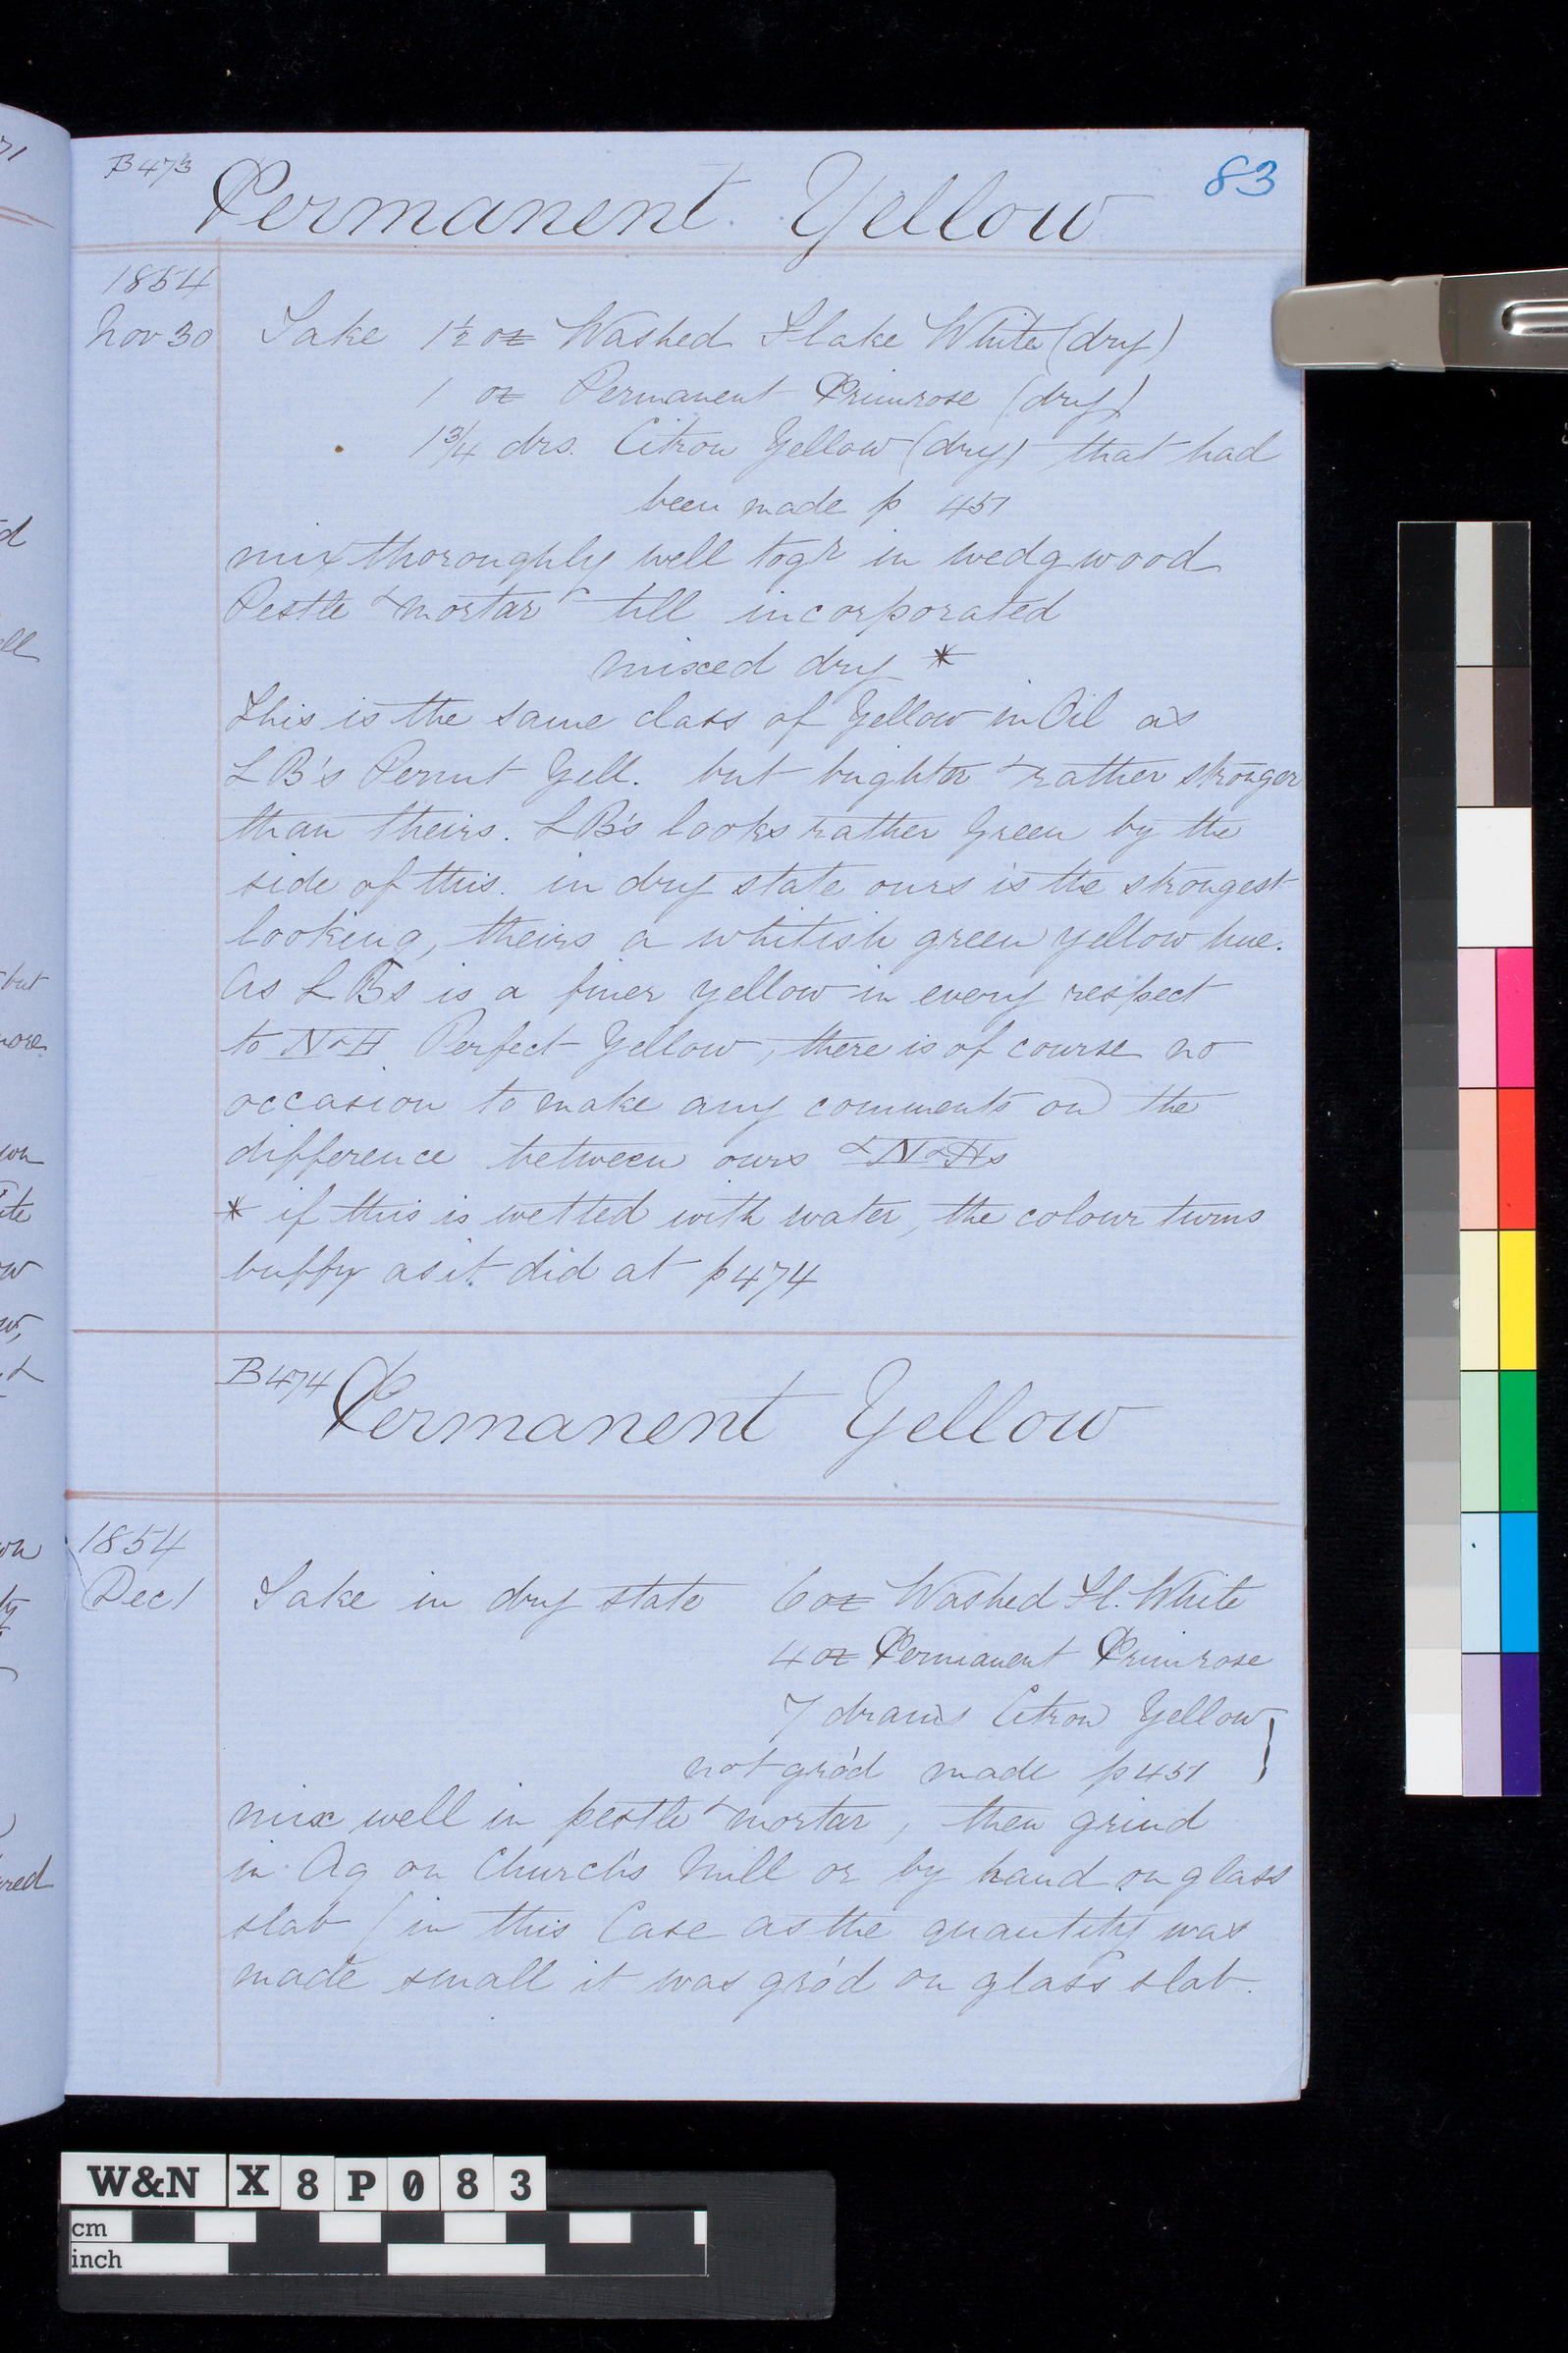 B473
83
Permanent Yellow
1854
Nov 30 Take 1½ oz Washed Flake White (dry)
1 oz Permanent Primrose (dry)
1¾ drs. Citron Yellow (dry) that had
been made p 451
mix thoroughly well togr in wedgwood
Pestle & mortar till incorporated
mixed dry *
This is the same class of Yellow in Oil as
LB's Permt Yell. but brighter & rather stronger
than theirs. LB's looks rather Green by the
side of this. in dry state ours is the strongest
looking, theirs a whitish green yellow hue.
As LBs is a finer yellow in every respect
to N&H Perfect Yellow, there is of course no
occasion to make any comments on the
difference between ours & N&Hs
* if this is wetted with water, the colour turns
buffy as it did at p474
B474
Permanent Yellow
1854
Dec 1 Take in dry state 6 oz Washed Fl. White
4 oz Permanent Primrose
7 drams Citron Yellow
not gro'd made p451 }
mix well in pestle & mortar, then grind
in Aq on Church's Mill or by hand on glass
slab (in this Case as the quantity was
made small it was gro'd on glass slab.
W&N X8P083
cm
inch